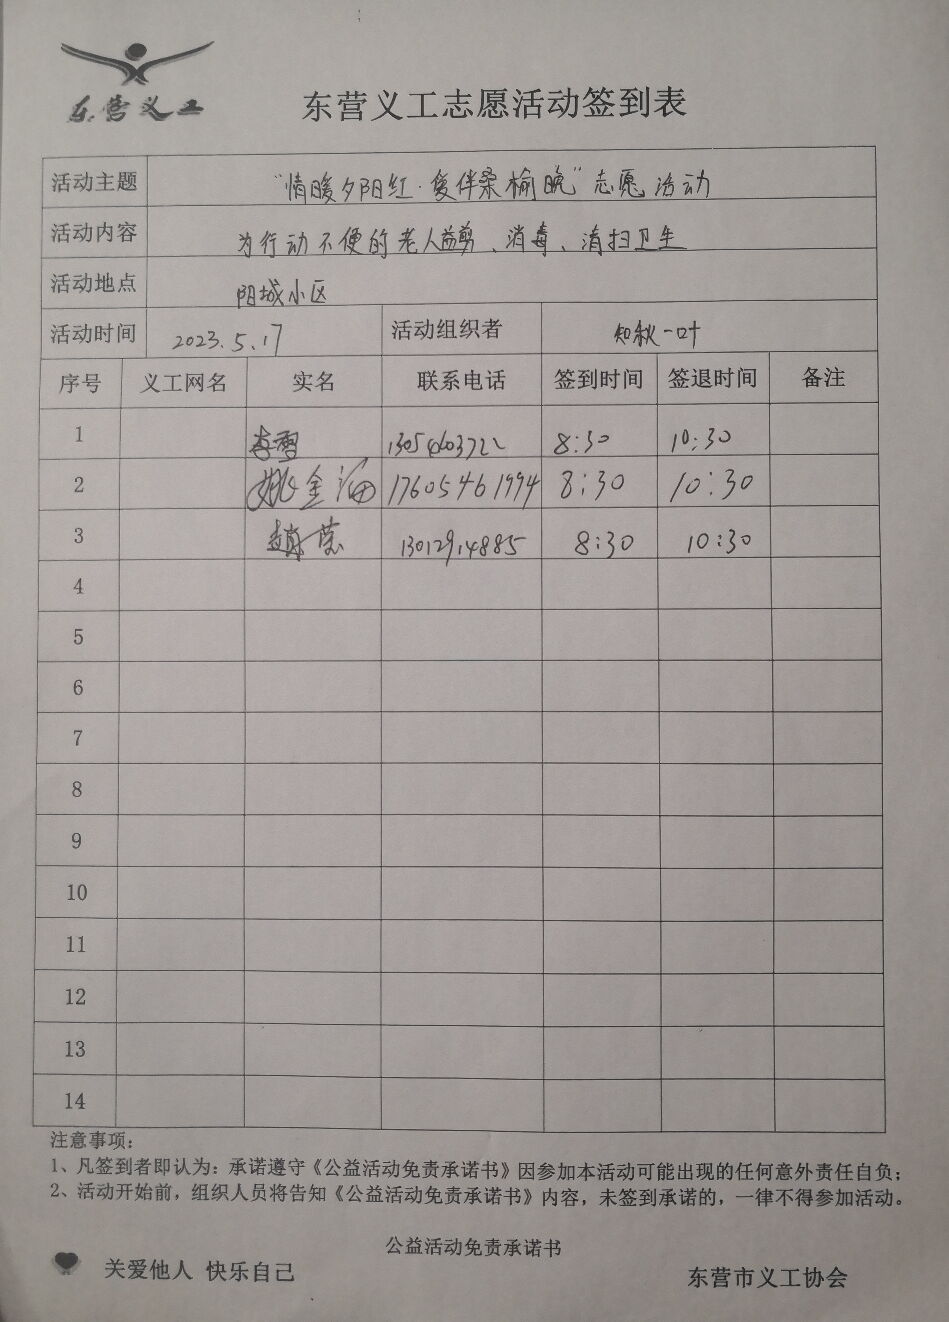 东营义工
东营义工志愿活动签到表
活动主题 “情暖夕阳红·爱伴桑榆晚”志愿活动
活动内容 为行动不便的老人益剪、消毒、清扫卫生
活动地点 阳城小区
活动时间 2023.5.17 活动组织者 知秋一叶
序号 义工网名 实名 联系电话 签到时间 签退时间 备注
1 李雪 8:30 10:30
2 姚金海 17605461994 8:30 10:30
3 13012914885 8:30 10:30
4
5
6
7
8
9
10
11
12
13
14
注意事项:
1、凡签到者即认为:承诺遵守《公益活动免责承诺书》因参加本活动可能出现的任何意外责任自负;
2、活动开始前,组织人员将告知《公益活动免责承诺书》内容,未签到承诺的,一律不得参加活动。
公益活动免责承诺书
关爱他人 快乐自己
东营市义工协会